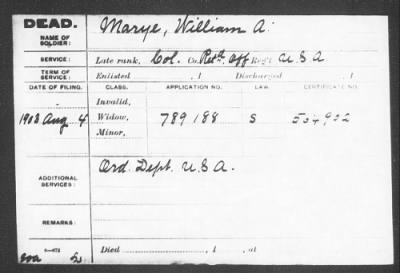 DEAD.
NAME OF SOLDIER: Marye, William A.
SERVICE: Late rank, Col. Co. Ret'd Off Reg't U S A
TERM OF SERVICE: Enlisted , 1 Discharged , 1
DATE OF FILING. CLASS. APPLICATION NO. LAW. CERTIFICATE NO.
Invalid,
1903 Aug 4 Widow, 789188 S
Minor,
ADDITIONAL SERVICES: Ord. Dept. U.S.A.
REMARKS:
Died , 1 , at